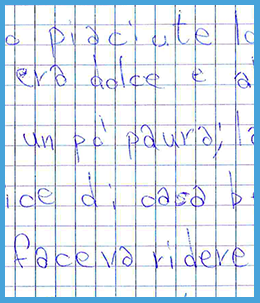 o piaciute lo
era dolce e a
un pó paura; la
ice di casa b
faceva ridere